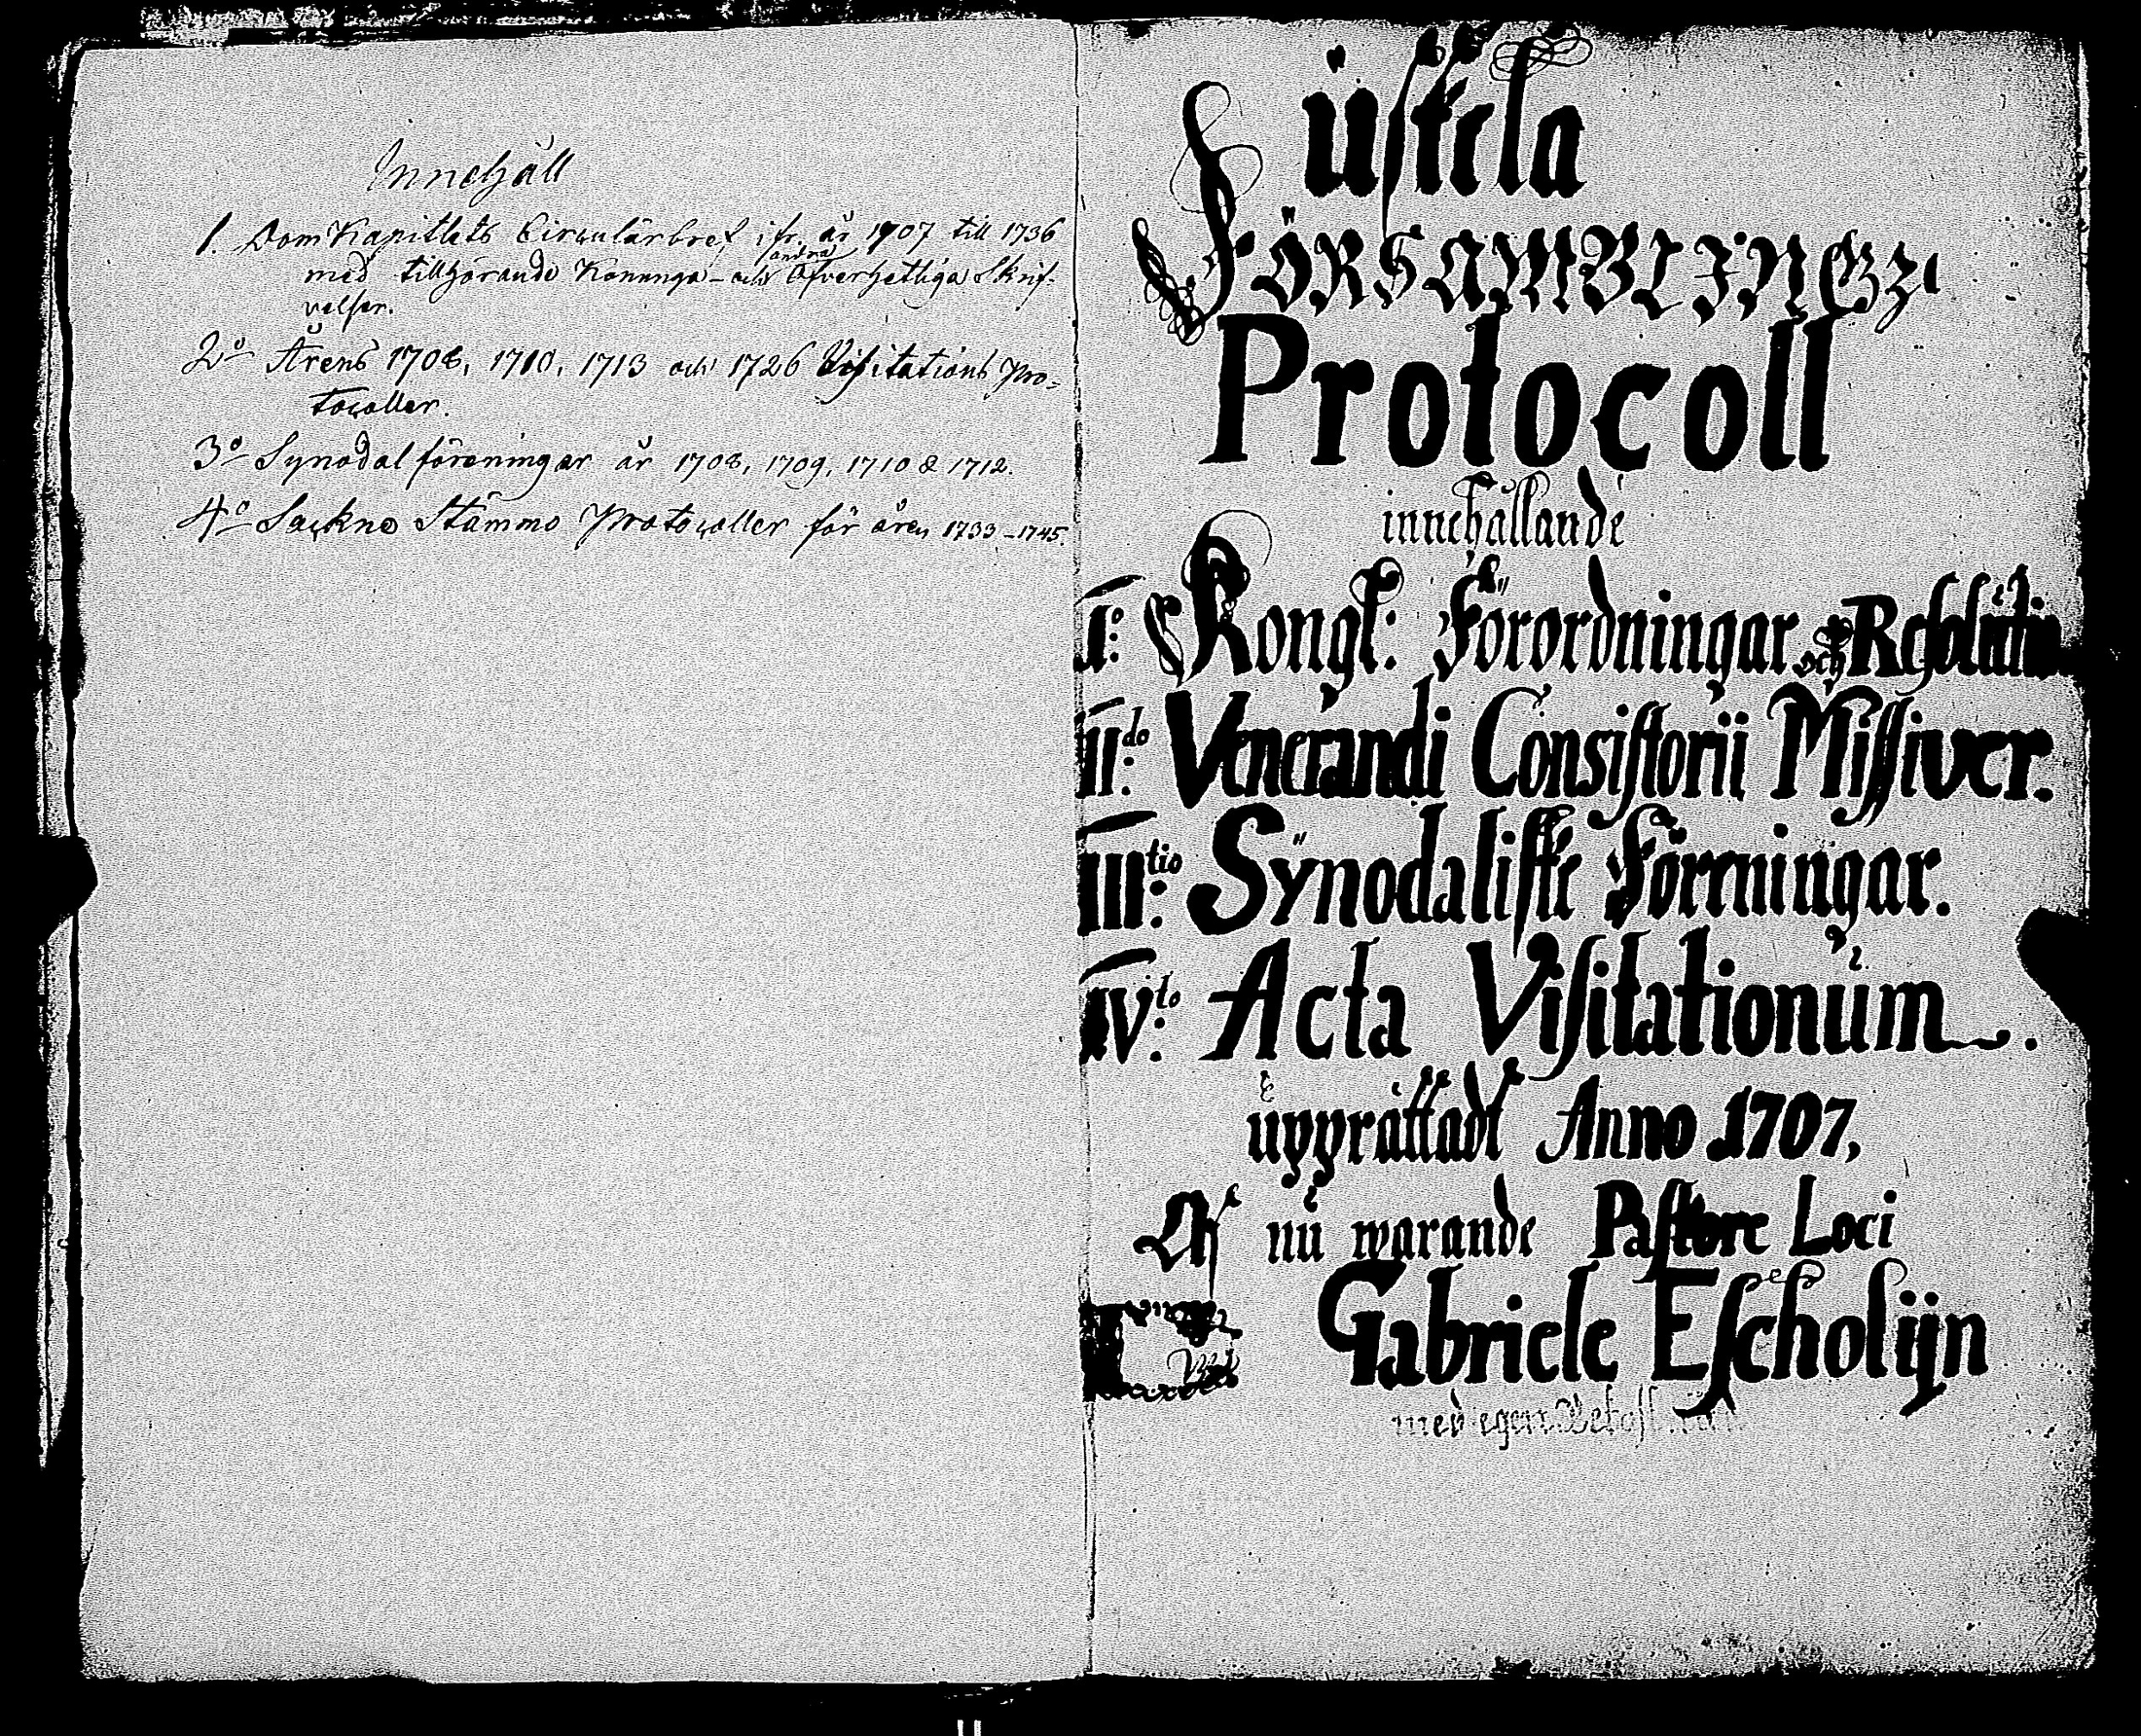 Innehåll
1. Dom Kapitlets Circulärbref ifr. år 1707 till 1736
andra
med tillhörande Konunga- och Öfverhetliga Skrif-
velser.
2o Årens 1708, 1710, 1713 och 1726 Visitations Pro-
tocoller.
3o Synodal föreningar år 1708, 1709, 1710 & 1712.
4o Sockne Stämmo Protocoller för åren 1733-1745.
üskela
FÖRSAMBLINGZ
Protocoll
innehållande
I:o Kongl: Förordningar och Resolutio
II:do Venerandi Consistorii Missiver.
III:tio Sÿnodaliske Föreningar.
IV:to Acta Visitationum.
upprättadt Anno 1707,
Af nu warande Pastore Loci
Gabriele Escholijn
med egen